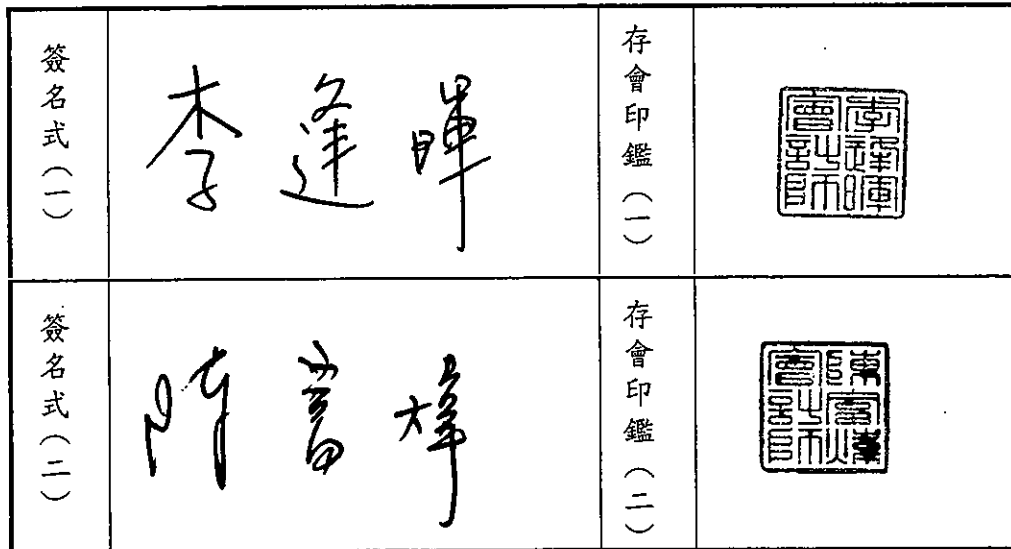 簽名式(一)
李逢暉
存會印鑑(一)
李逢暉
會計師
簽名式(二)
陳富煒
存會印鑑(二)
陳富煒
會計師